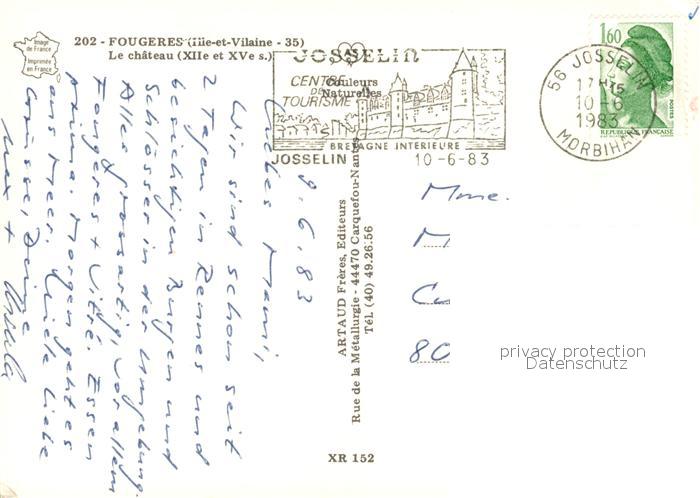 Image
de France
Imprimée
en France
202 - FOUGERES (Ille-et-Vilaine - 35)
Le château (XIIe et XVe s.)
JOSSELIN
CENTRE
DE
TOURISME
Couleurs
Naturelles
BRETAGNE INTERIEURE
JOSSELIN 10-6-83
56 JOSSELIN
17H15
10-6
1983
MORBIHAN
1,60
POSTES
REPUBLIQUE FRANÇAISE
9.6.83
Liebes Mami,
Wir sind schon seit
2 Tagen in Rennes und
besichtigen Burgen und
Schlösser in der Umgebung.
Alles grossartig, vor allem
Fougères + Vitré. Essen
prima. Morgen geht es
ans Meer. Viele liebe
Grüsse, Deine
Max + Ursula
ARTAUD Frères, Editeurs
Rue de la Métallurgie - 44470 Carquefou-Nantes
Tél. (40) 49.26.56
XR 152
Mme.
M
80
privacy protection
Datenschutz